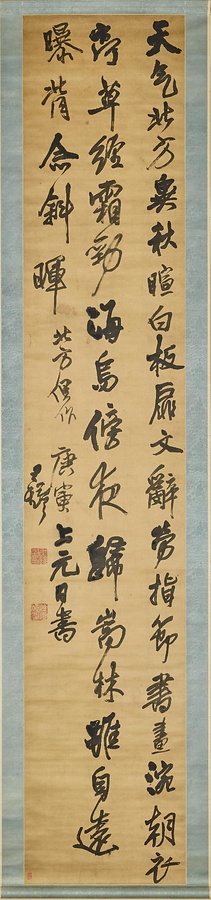 天气北方奥秋暄白板扉文辭勞指節書畫浣朝衣
草經霜勁海鳥傍夜歸嵩林雖自遠
曝背念斜暉北方作
庚寅上元日書
王鐸